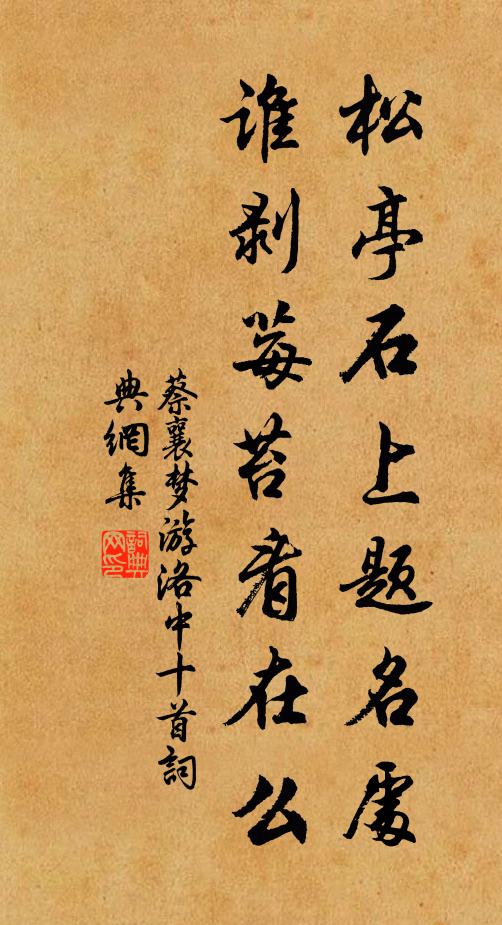 松亭石上题名處
谁剥莓苔看在么
蔡襄梦游洛中十首詞
典網集
詞典网印